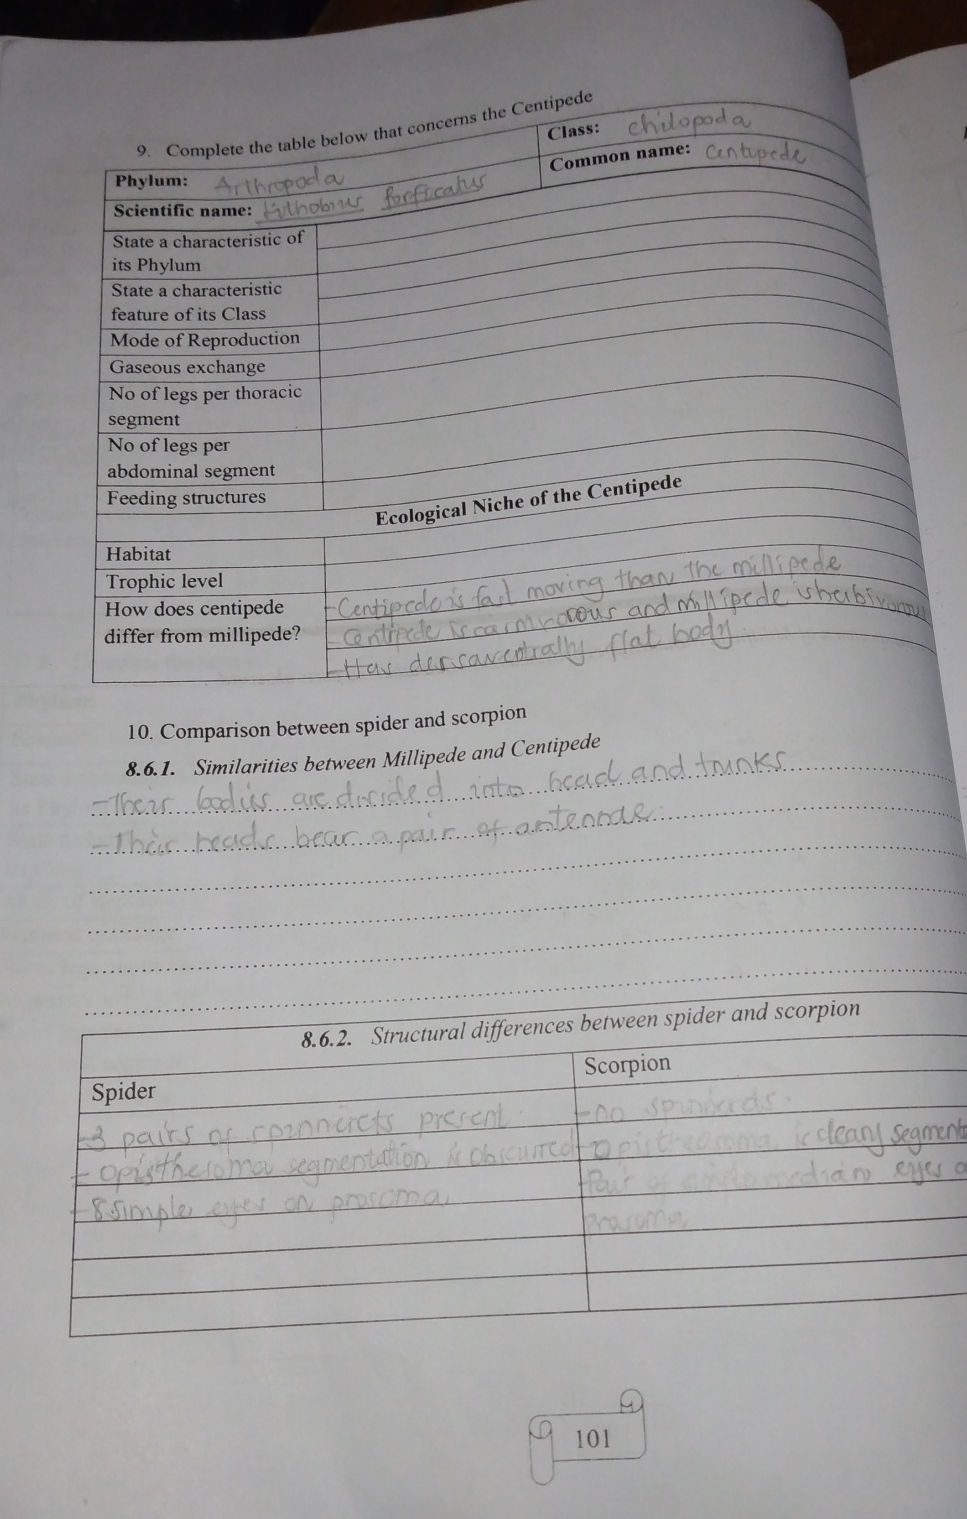 9. Complete the table below that concerns the Centipede
Phylum: Arthropoda
Class: chilopoda
Scientific name: Lithobius forficatus
Common name: Centipede
State a characteristic of
its Phylum
State a characteristic
feature of its Class
Mode of Reproduction
Gaseous exchange
No of legs per thoracic
segment
No of legs per
abdominal segment
Feeding structures
Ecological Niche of the Centipede
Habitat
Trophic level
How does centipede
differ from millipede?
- Centipede is fast moving than the millipede
- Centipede is carnivorous and millipede is herbivorous
- Has dorsaventrally flat body
10. Comparison between spider and scorpion
8.6.1. Similarities between Millipede and Centipede
- Their bodies are divided into head and trunks
- Their heads bear a pair of antennae.
8.6.2. Structural differences between spider and scorpion
Spider
Scorpion
- 3 pairs of spinnerets present.
- no
- segmentation is obscured
- is cleary segment
- 8 simple eyes on prosoma
Pair of median eyes
prosoma
101